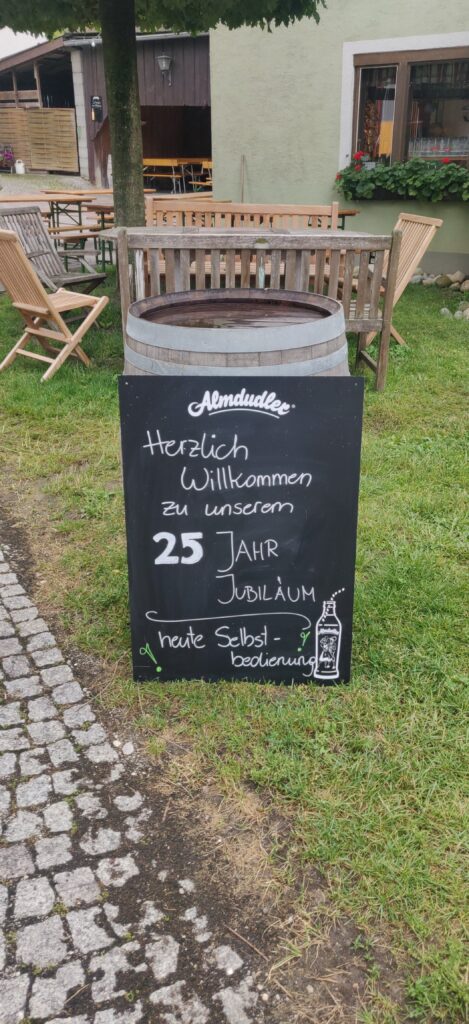 Almdudler
Herzlich
Willkommen
zu unserem
25 JAHR
JUBILÄUM
heute Selbst-
bedienung
Almdudler